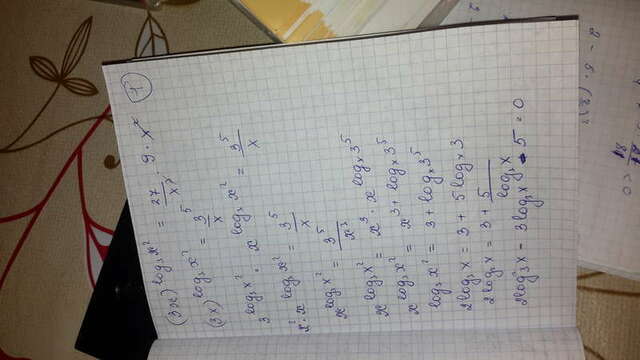 1
(3x)^log₃x² = 27/x³ 9 · x²
(3x)^log₃x² = 3⁵/x
3^log₃x² · x^log₃x² = 3⁵/x
x² · x^log₃x² = 3⁵/x
x^log₃x² = 3⁵/x³
x^log₃x² = x³ · x^logₓ3⁵
x^log₃x² = x^3+logₓ3⁵
log₃x² = 3 + logₓ3⁵
2log₃x = 3 + 5logₓ3
2log₃x = 3 + 5/log₃x
2log₃²x - 3log₃x - 5 = 0